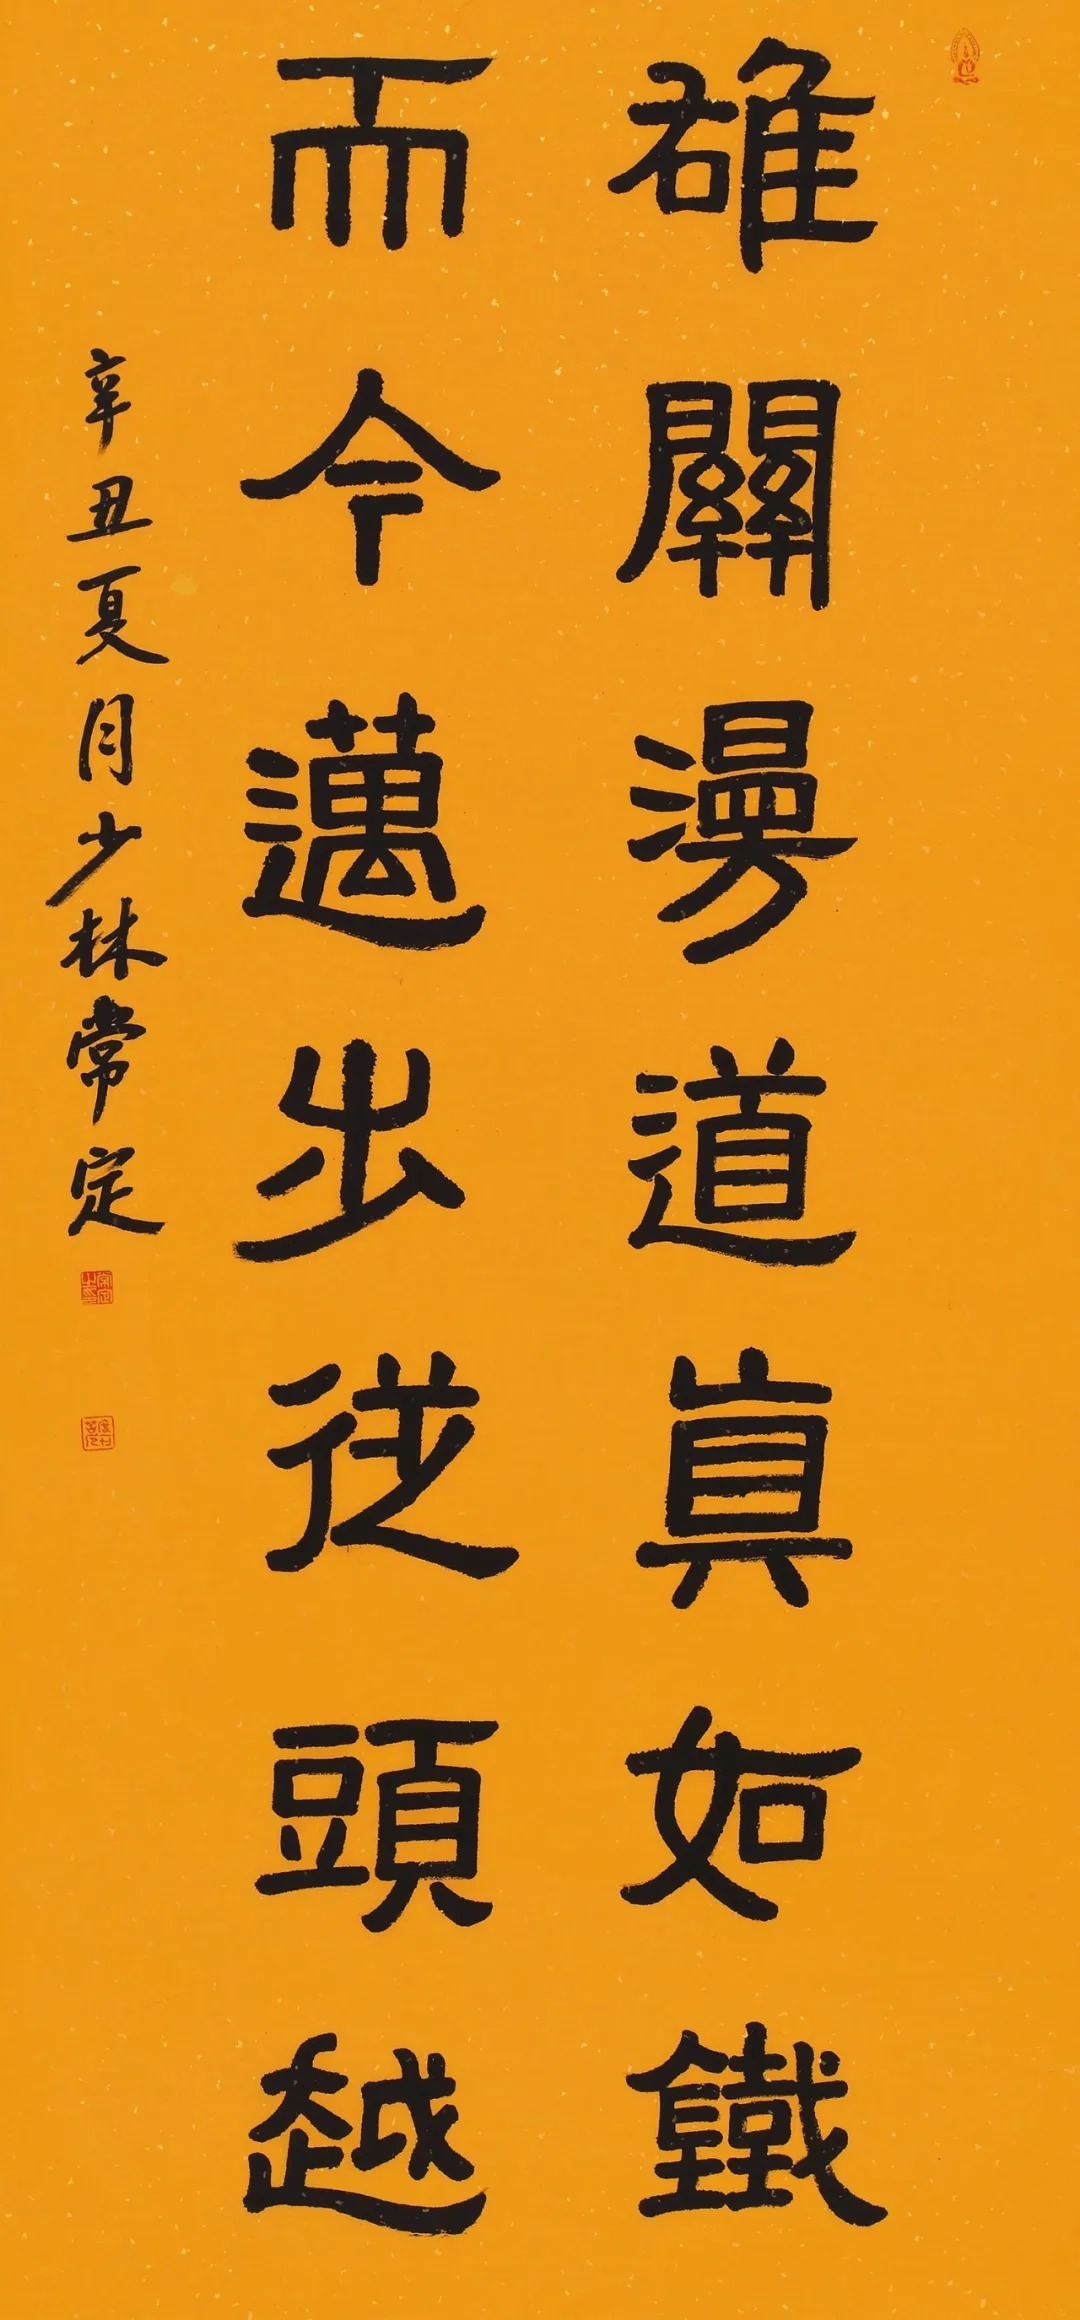 雄關漫道真如鐵
而今邁步從頭越
辛丑夏月少林常定
常定之印